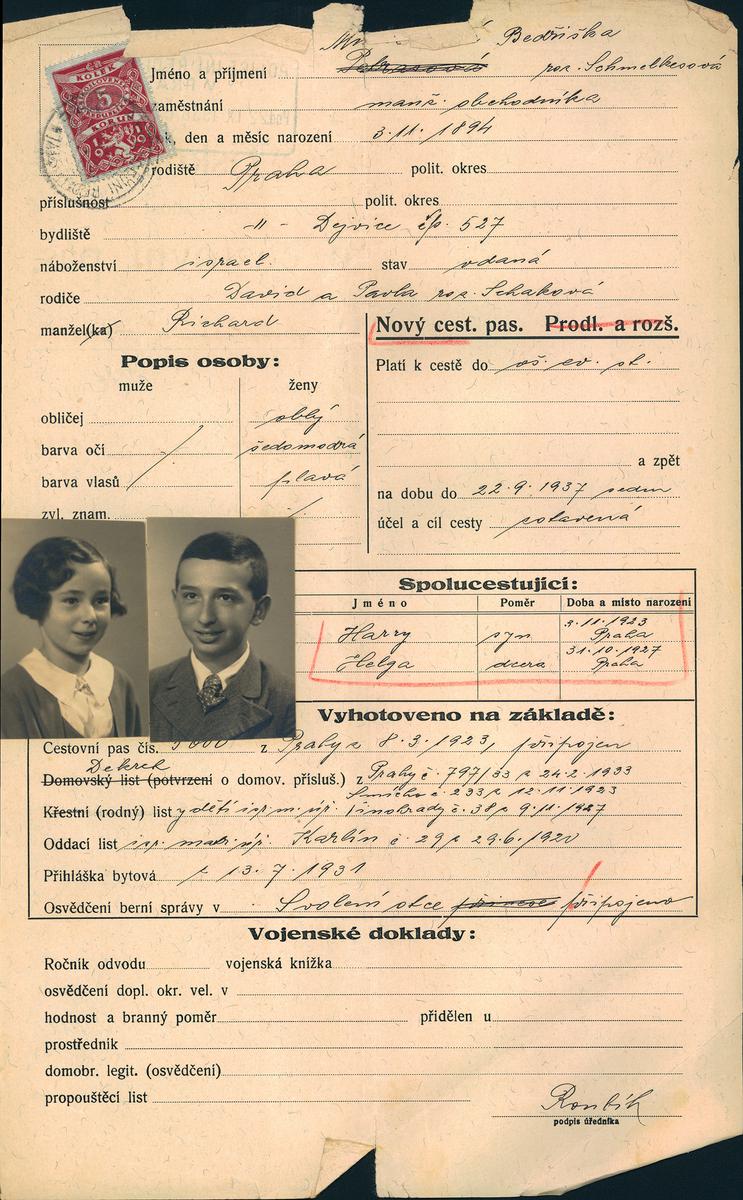 Bedřiška
Jméno a příjmení roz. Schmelkesová
zaměstnání manž. obchodníka
den a měsíc narození 3.11.1894
KOLEK
5
KORUN
rodiště Praha polit. okres
příslušnost polit. okres
bydliště -"- Dejvice čp. 527
náboženství israel. stav vdaná
rodiče David a Pavla roz. Schaková
manžel(ka) Richard
Nový cest. pas. Prodl. a rozš.
Popis osoby:
Platí k cestě do vš. ev. st.
muže ženy
obličej oblý
barva očí / šedomodrá
barva vlasů plavá
a zpět
na dobu do 22.9.1937
zvl. znam. /
účel a cíl cesty zotavená
Spolucestující:
Jméno Poměr Doba a místo narození
Harry syn 3.11.1923 Praha
Helga dcera 31.10.1927 Praha
Vyhotoveno na základě:
Cestovní pas čís. z Prahy z 8.3.1923, připojen
Dekret
Domovský list (potvrzení o domov. přísluš.) z Prahy č. 797/33 z 24.2.1933
Smíchov č. 233 z 12.11.1923
Křestní (rodný) list y dětí isr. m. úř. Vinohrady č. 38 z 9.11.1927
Oddací list isr. matr. úř. Karlín č. 29 z 29.6.1920
Přihláška bytová z 13.7.1931
Osvědčení berní správy v Svolení otce připojeno
Vojenské doklady:
Ročník odvodu vojenská knížka
osvědčení dopl. okr. vel. v
hodnost a branný poměr přidělen u
prostředník
domobr. legit. (osvědčení)
propouštěcí list
Roubík
podpis úředníka